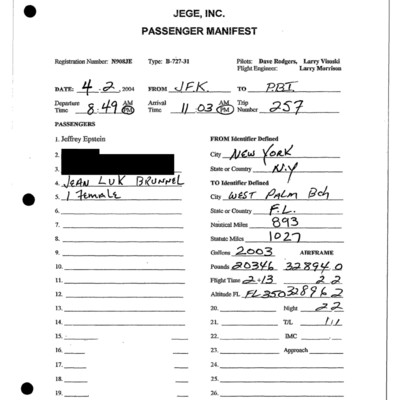 JEGE, INC.
PASSENGER MANIFEST
Registration Number: N908JE Type: B-727-31 Pilots: Dave Rodgers, Larry Visoski
Flight Engineer: Larry Morrison
DATE: 4-2, 2004 FROM J.F.K. TO P.B.I.
Departure Time 8:49 AM PM Arrival Time 11:03 AM PM Trip Number 257
PASSENGERS
1. Jeffrey Epstein FROM Identifier Defined
2. City NEW YORK
3. State or Country N.Y
4. JEAN LUK BRUNNEL TO Identifier Defined
5. 1 FEMALE City WEST PALM Bch
6. State or Country F.L.
7. Nautical Miles 893
8. Statute Miles 1027
9. Gallons 2003 AIRFRAME
10. Pounds 20346 32894 0
11. Flight Time 2+13 2 2
12. Altitude FL FL350 32896 2
13. 20. Night 2.2
14. 21. T/L 1/1
15. 22. IMC
16. 23. Approach
17.
18.
19.